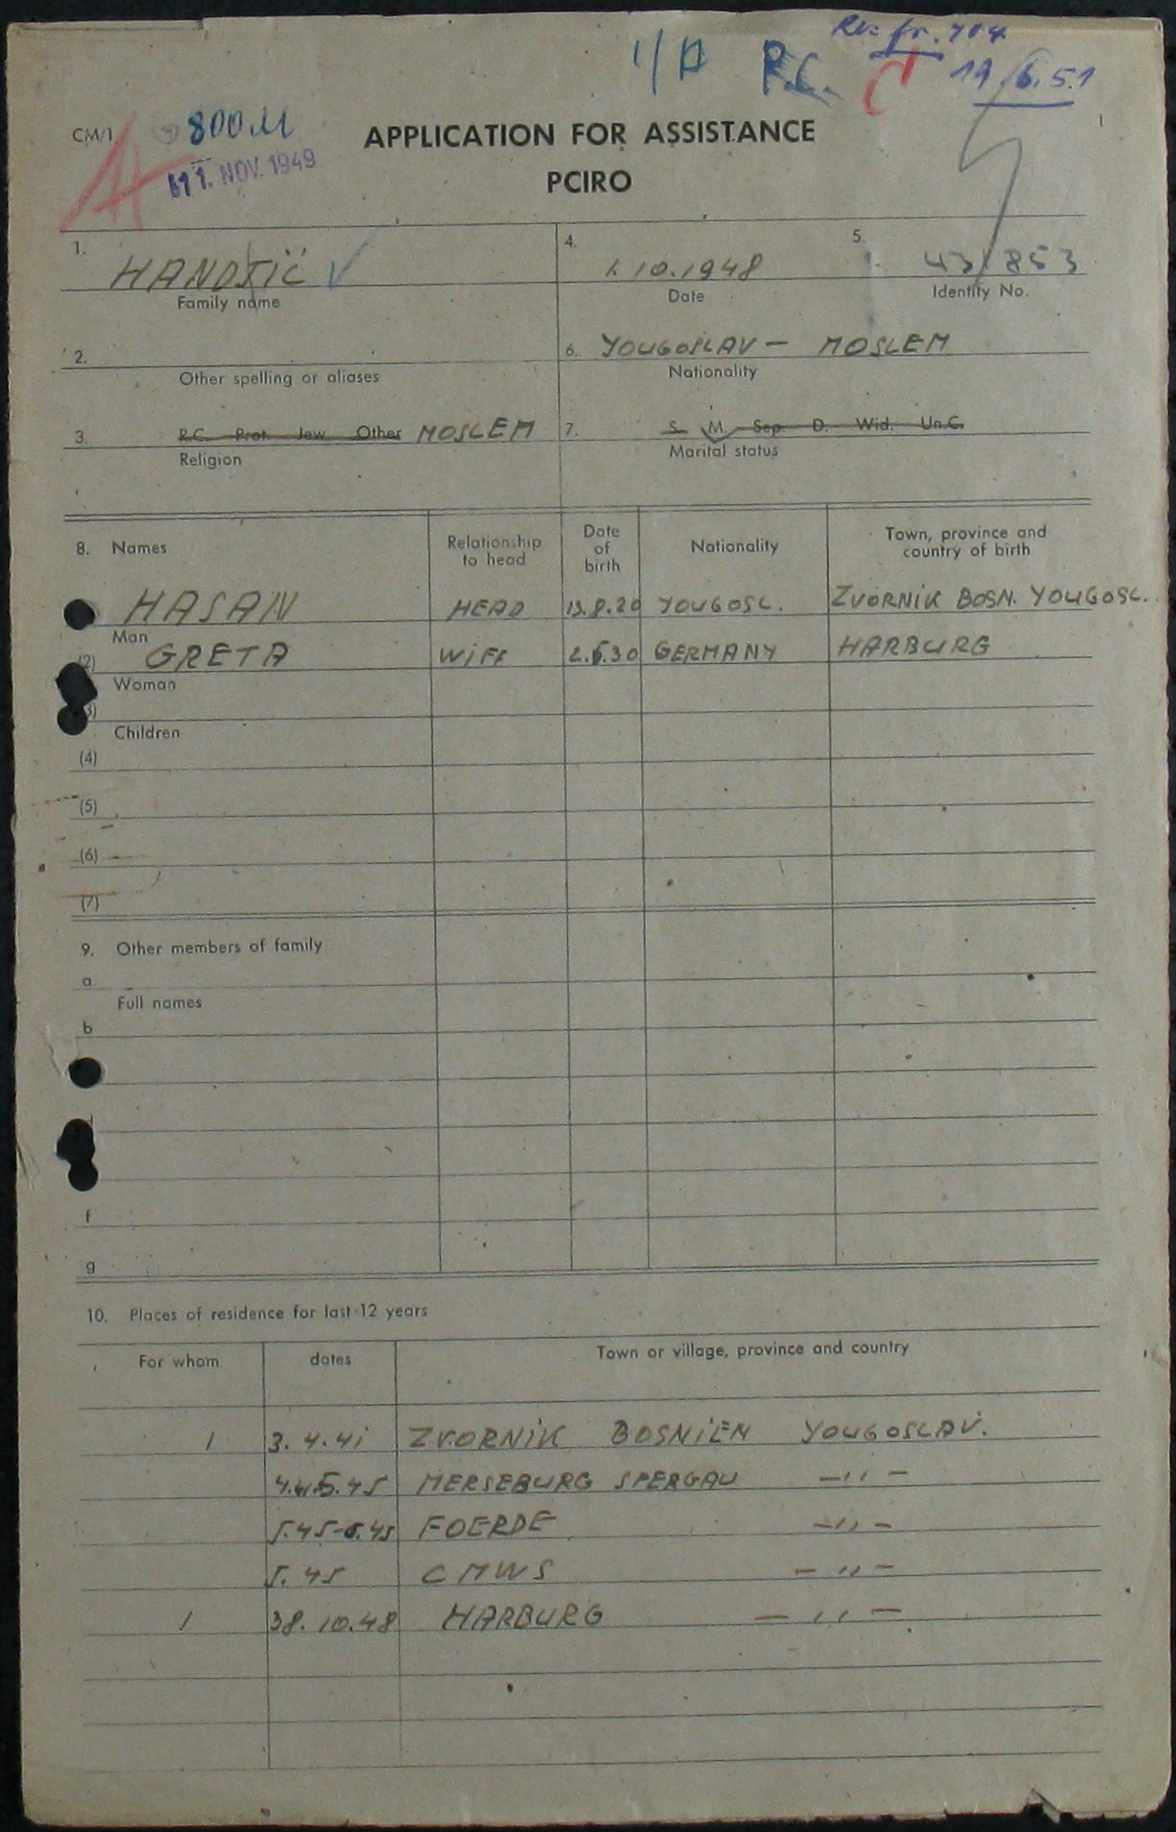 1/A R.C.
19.6.51
CM/1 800.M
NOV. 1949
APPLICATION FOR ASSISTANCE
PCIRO
1. HANDŽIĆ V
Family name
4. 1.10.1948
Date
5. 43853
Identity No.
2.
Other spelling or aliases
6. YOUGOSLAV - MOSLEM
Nationality
3. R.C. Prot. Jew Other MOSLEM
Religion
7. S. M. Sep. D. Wid. Un.C.
Marital status
8. Names Relationship to head Date of birth Nationality Town, province and country of birth
HASAN HEAD 13.8.20 YOUGOSL. ZVORNIK BOSN. YOUGOSL.
Man
(2) GRETA WIFE 2.5.30 GERMANY HARBURG
Woman
3)
Children
(4)
(5)
(6)
(7)
9. Other members of family
a
Full names
b
f
g
10. Places of residence for last 12 years
For whom dates Town or village, province and country
1 3.4.41 ZVORNIK BOSNIEN YOUGOSLAV.
MERSEBURG SPERGAU -,,-
5.45-6.45 FOERDE -,,-
5.45 CMWS -,,-
1 38.10.48 HARBURG -,,-